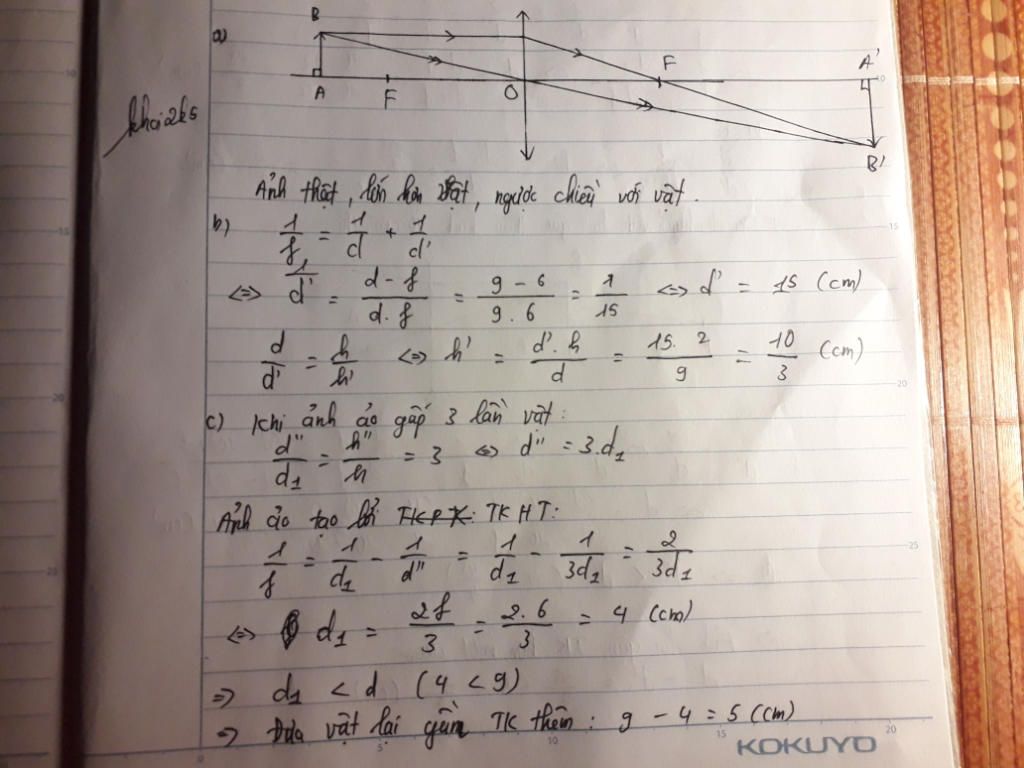 a)
B
A F O F A'
B'
khoi2k5
Ảnh thật, lớn hơn vật, ngược chiều với vật.
b) 1/f = 1/d + 1/d'
<=> 1/d' = (d - f)/(d.f) = (9 - 6)/(9.6) = 1/15 <=> d' = 15 (cm)
d/d' = h/h' <=> h' = (d'.h)/d = (15.2)/9 = 10/3 (cm)
c) Khi ảnh ảo gấp 3 lần vật:
d''/d₁ = h''/h = 3 <=> d'' = 3.d₁
Ảnh ảo tạo bởi TKPK: TKHT:
1/f = 1/d₁ - 1/d'' = 1/d₁ - 1/3d₁ = 2/3d₁
<=> d₁ = 2f/3 = 2.6/3 = 4 (cm)
=> d₁ < d (4 < 9)
=> Đưa vật lại gần TK thêm: 9 - 4 = 5 (cm)
KOKUYO